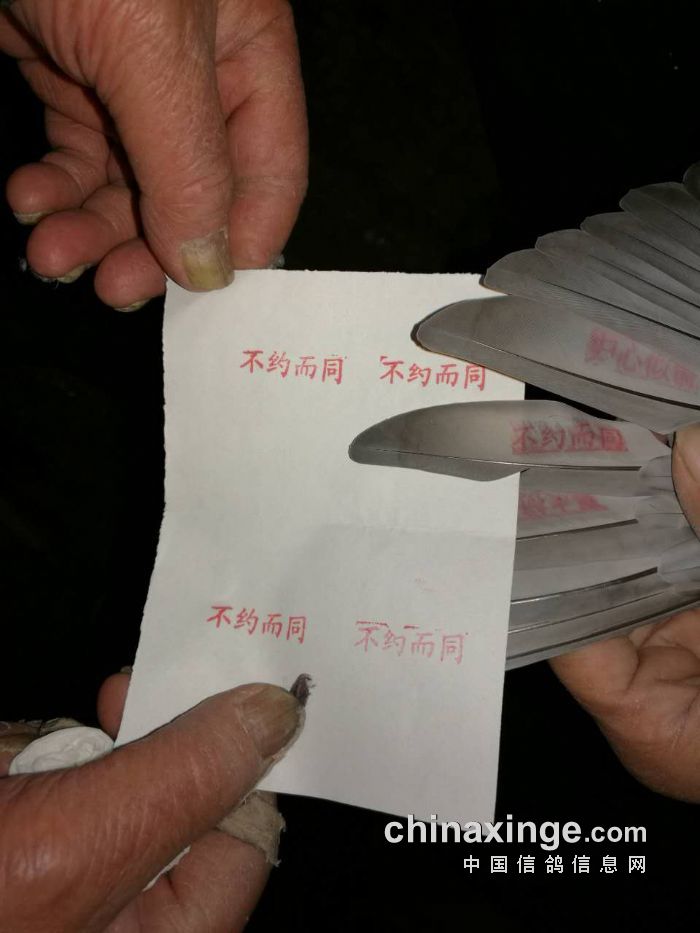 不约而同 不约而同
归心似箭
不约而同
不约而同 不约而同
chinaxinge.com
中国信鸽信息网